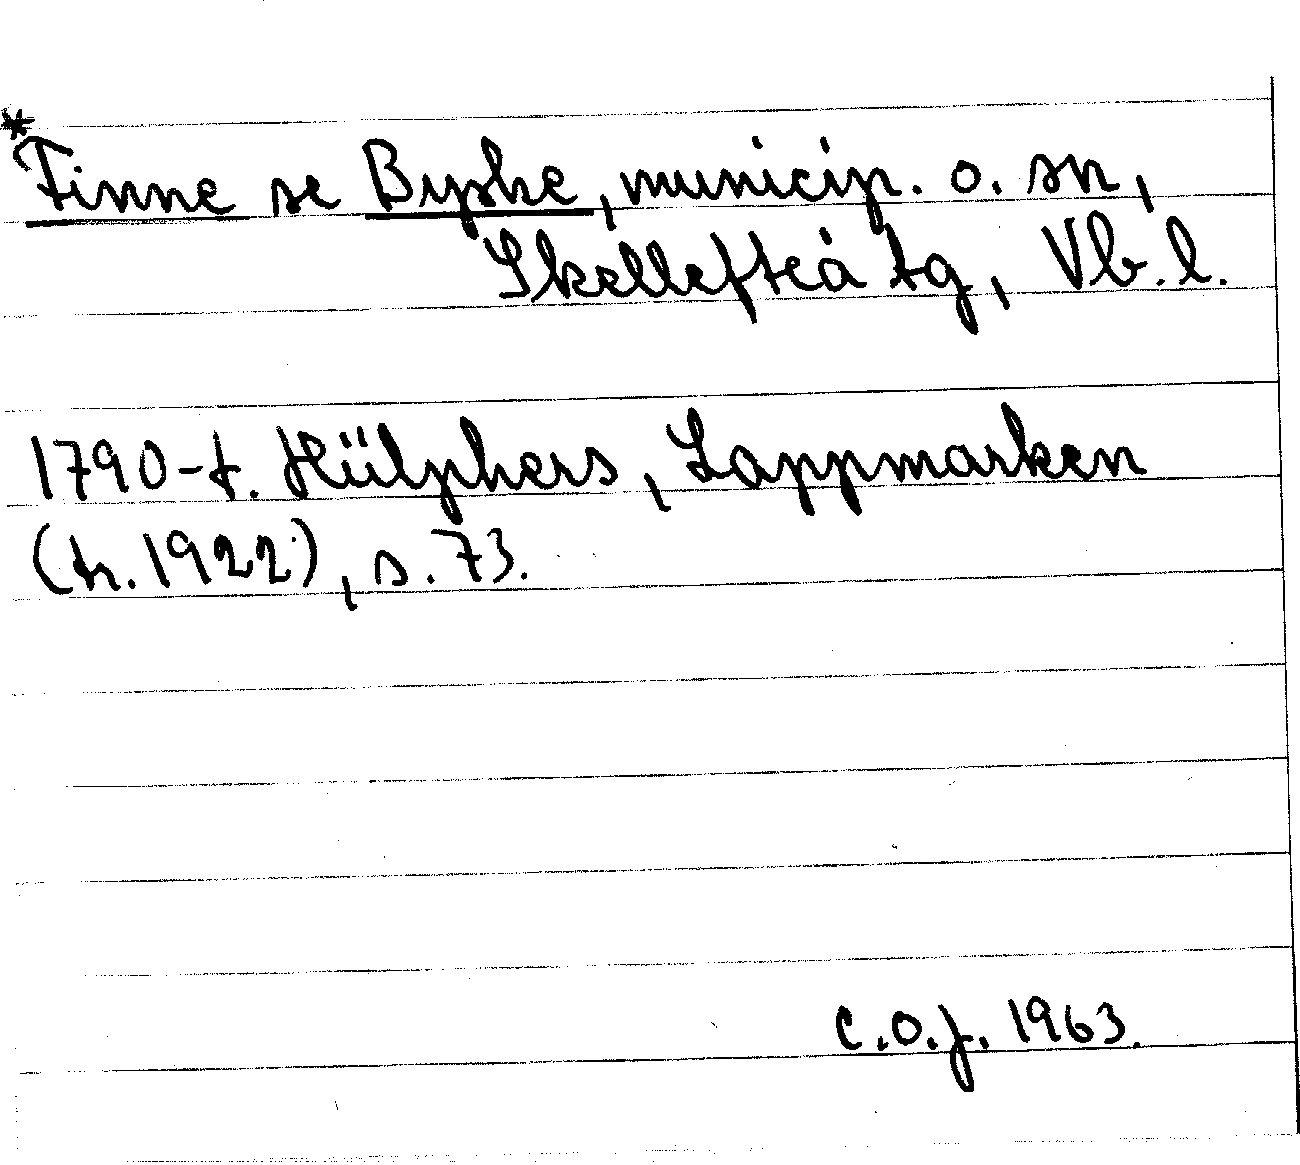 *Finne se Byske, municip. o. sn,
Skellefteå tg, Vb. l.
1790-t. Hülphers, Lappmarken
(tr. 1922), s. 73.
C.O.J. 1963.